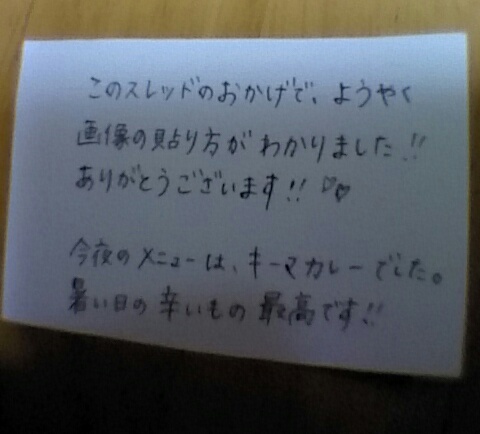 このスレッドのおかげで、ようやく
画像の貼り方がわかりました!!
ありがとうございます!! ♡♥
今夜のメニューは、キーマカレーでした。
暑い日の辛いもの最高です!!